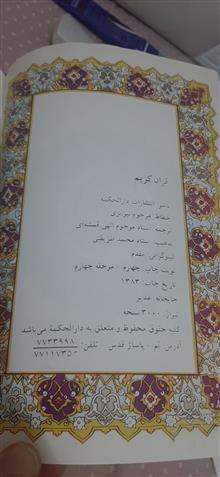 قرآن کریم
ناشر: انتشارات دارالحکمة
خطاط: مرحوم نیریزی
ترجمه: استاد مرحوم الهی قمشه‌ای
تذهیب: استاد محمد تفریشی
لیتوگرافی: مقدم
نوبت چاپ: چهارم - مرحله چهارم
تاریخ چاپ: ۱۳۸۳
چاپخانه: غدیر
تیراژ: ۳۰۰۰ نسخه
کلیه حقوق محفوظ و متعلق به دارالحکمة می‌باشد
آدرس: قم - پاساژ قدس - تلفن: ۷۷۳۳۹۹۸